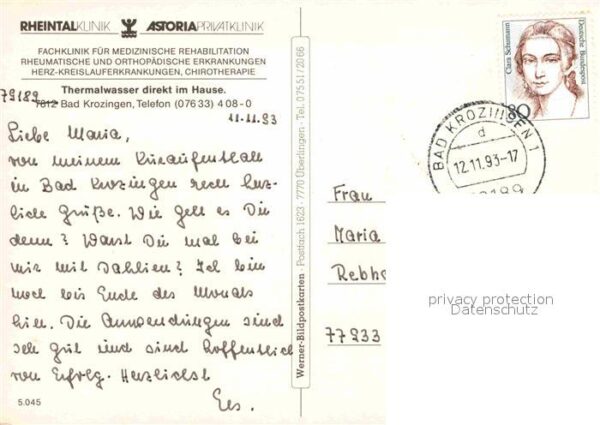 RHEINTALKLINIK ASTORIA PRIVATKLINIK
FACHKLINIK FÜR MEDIZINISCHE REHABILITATION
RHEUMATISCHE UND ORTHOPÄDISCHE ERKRANKUNGEN
HERZ-KREISLAUFERKRANKUNGEN, CHIROTHERAPIE
Thermalwasser direkt im Hause.
79189
7812 Bad Krozingen, Telefon (076 33) 4 08-0
11.11.93
Liebe Maria,
von meinem Kuraufenthalt
in Bad Krozingen recht herz-
liche Grüße. Wie geht es Dir
denn? Warst Du mal bei
mir mit Dahlien? Ich bin
noch bis Ende des Monats
hier. Die Anwendungen sind
sehr gut und sind hoffentlich
von Erfolg. Herzlichst
5.045
Werner-Bildpostkarten · Postfach 1623 · 7770 Überlingen · Tel. 0 75 51/20 66
Clara Schumann
Deutsche Bundespost
80
BAD KROZINGEN 1
d
12.11.93-17
79189
Frau
Maria
Rebho
77933
privacy protection
Datenschutz